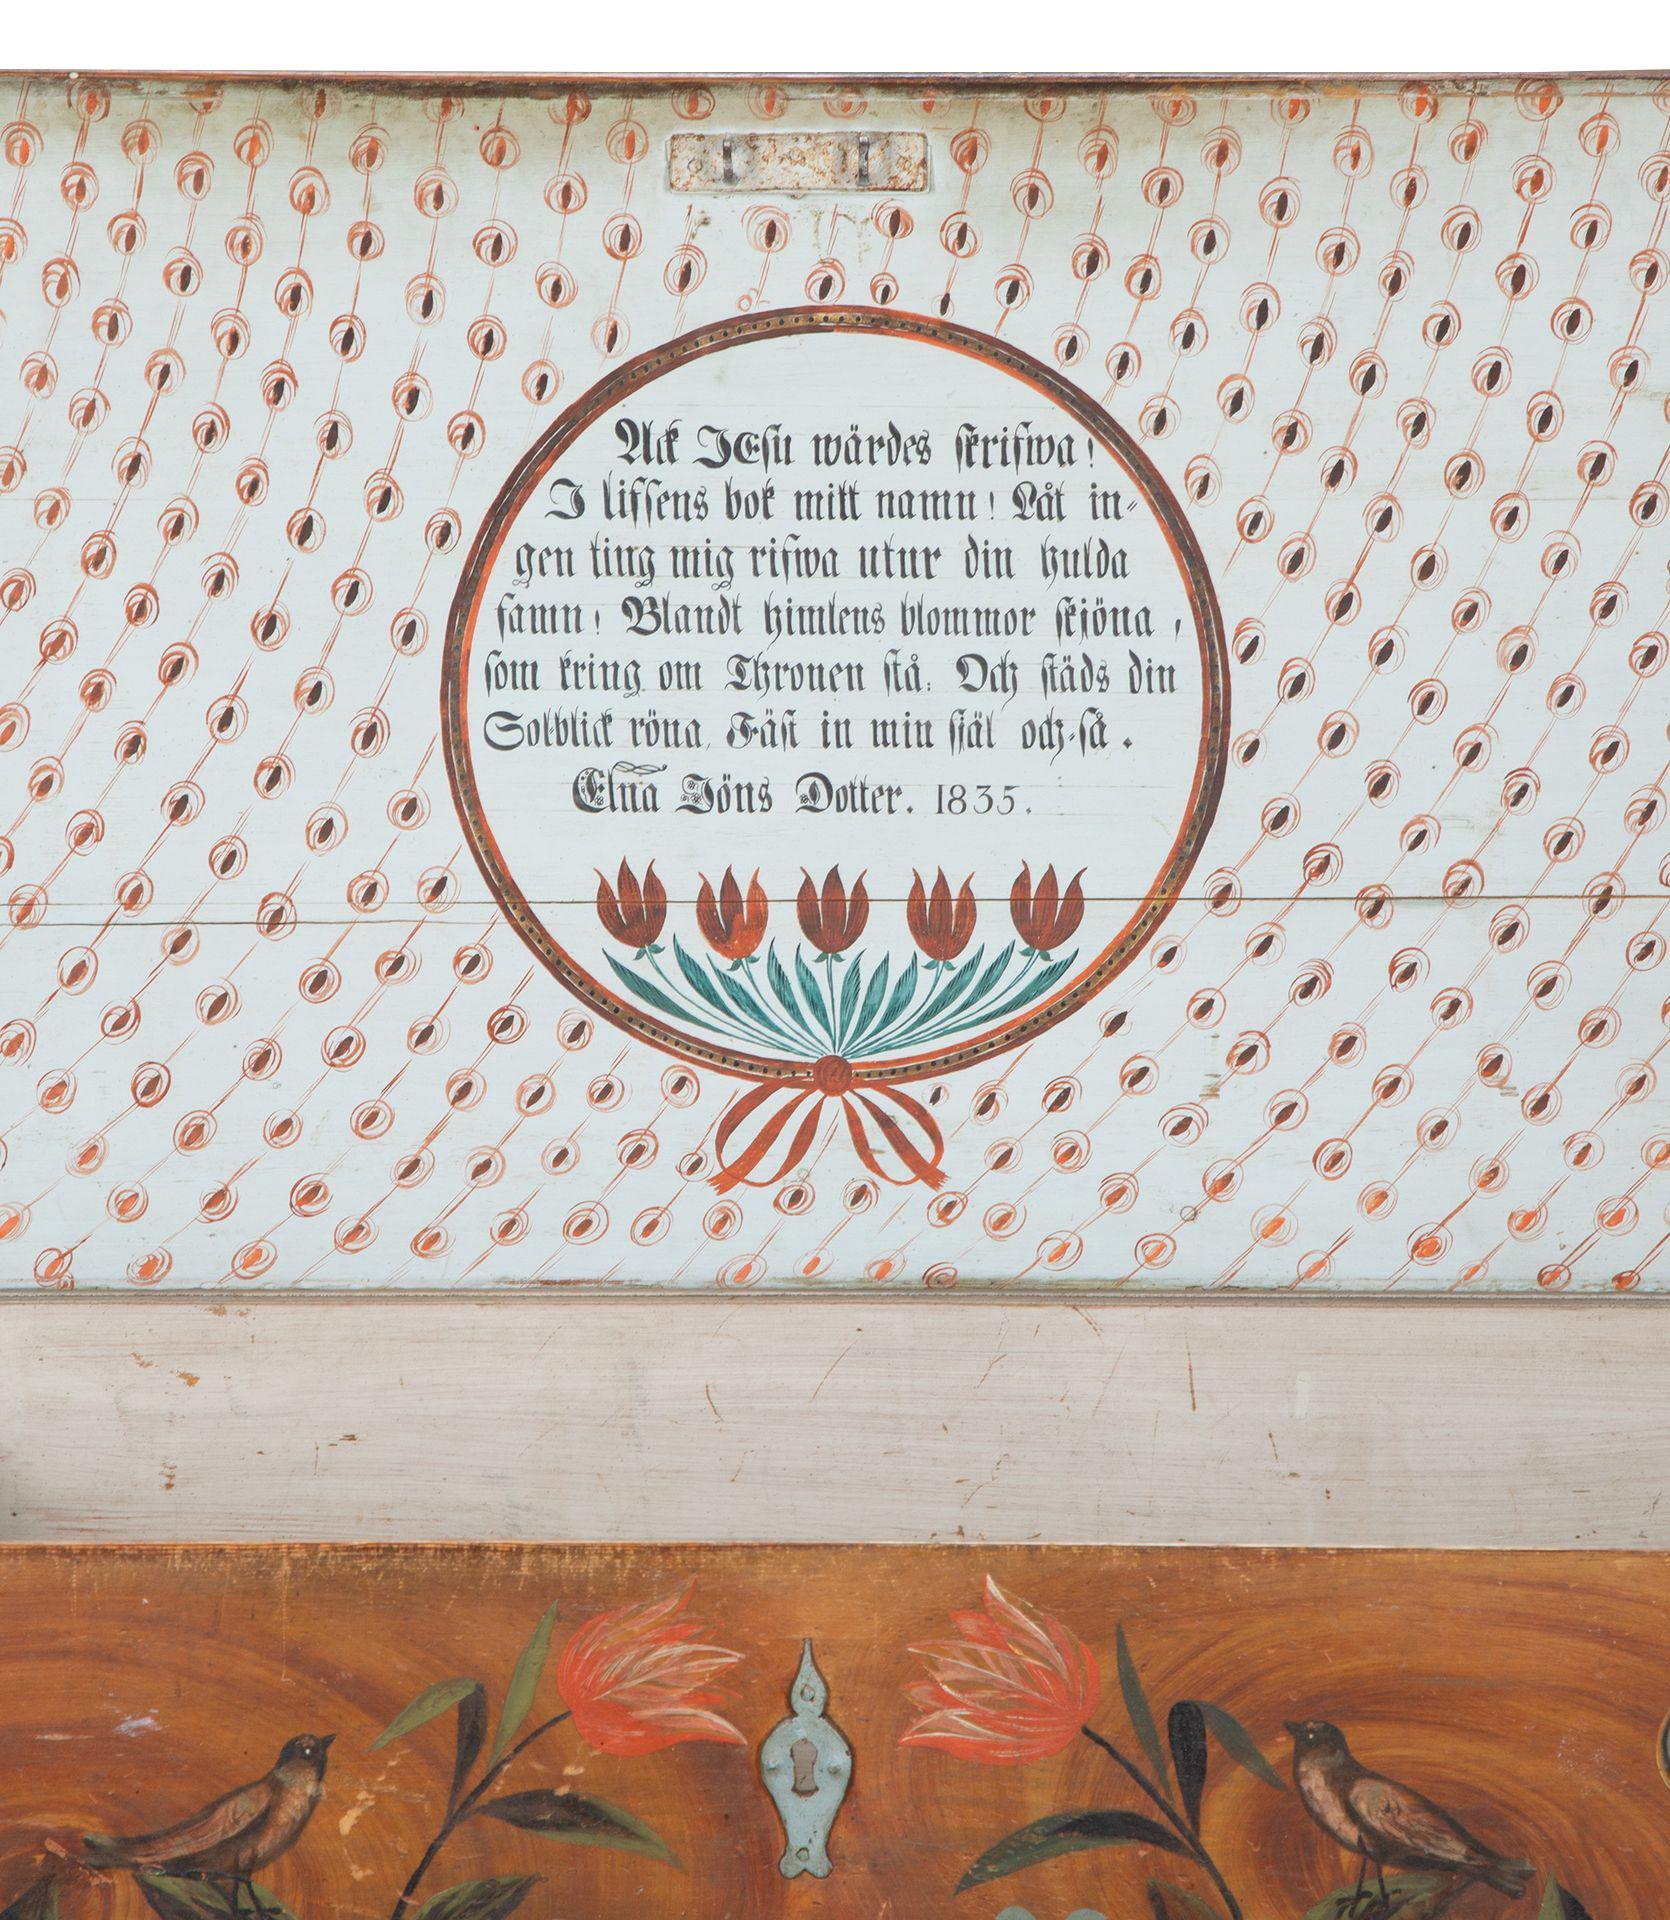 Ack JEsu wärdes skrifwa!
I lifsens bok mitt namn! Låt in-
gen ting mig rifwa utur din hulda
famn! Blandt himlens blommor skjöna,
som kring om Thronen stå: Och städs din
Solblick röna, Fäst in min själ och-så.
Elna Jöns Dotter. 1835.